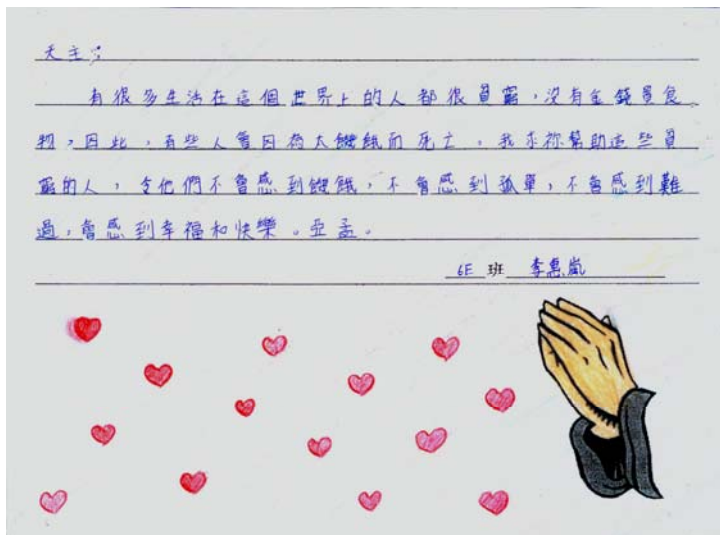 天主：
有很多生活在這個世界上的人都很貧窮，沒有金錢買食
物，因此，有些人會因為太饑餓而死亡。我求祢幫助這些貧
窮的人，令他們不會感到饑餓，不會感到孤單，不會感到難
過，會感到幸福和快樂。亞孟。
6E 班 李惠嵐